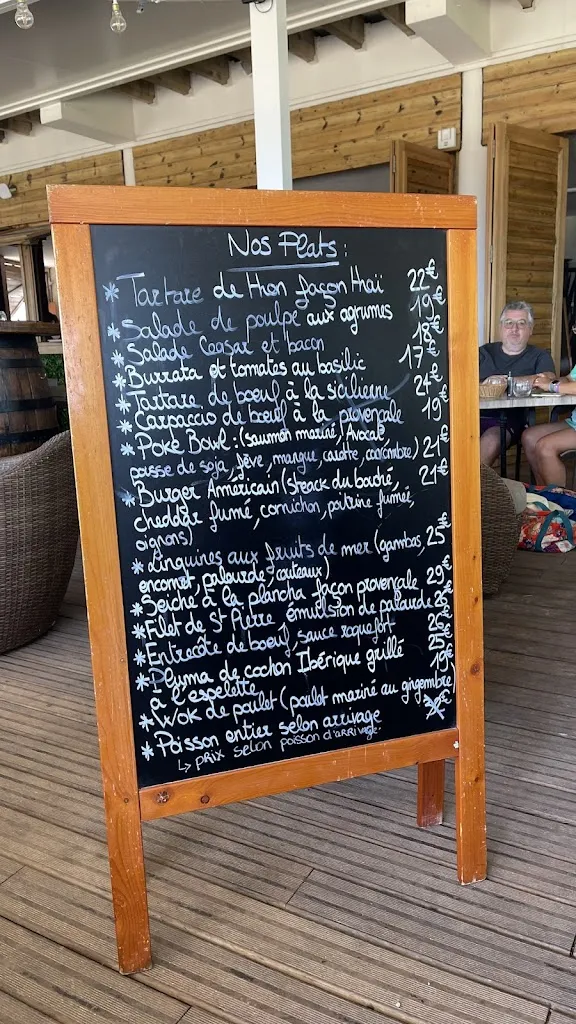 Nos Plats :
* Tartare de thon façon thaï 22€
* Salade de poulpe aux agrumes 19€
* Salade Ceasar et bacon 18€
* Burrata et tomates au basilic 17€
* Tartare de boeuf à la sicilienne 24€
* Carpaccio de boeuf à la provençale 19€
* Poké Bowl : (saumon mariné, Avocat
pousse de soja, fève, mangue, carotte, concombre) 21€
* Burger Américain (steack du boucher, 21€
cheddar fumé, cornichon, poitrine fumée,
oignons)
* Linguines aux fruits de mer (gambas, 25€
encornet, palourde, couteaux)
* Seiche à la plancha façon provençale 29€
* Filet de St Pierre, émulsion de palourde
* Entrecôte de boeuf, sauce roquefort
* Pluma de cochon Ibérique grillé
à l'espelette 19€
* Wok de poulet (poulet mariné au gingembre)
* Poisson entier selon arrivage
↳ prix selon poisson d'arrivage.